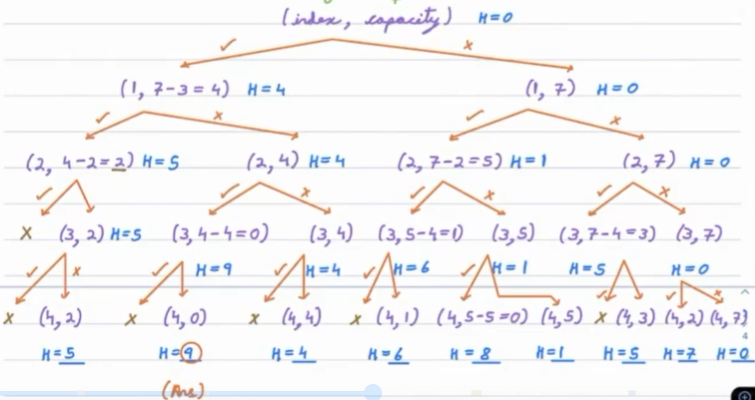 (index, capacity) H=0
✓ x
(1, 7-3 = 4) H=4 (1, 7) H=0
✓ x ✓ x
(2, 4-2=2) H=5 (2, 4) H=4 (2, 7-2=5) H=1 (2, 7) H=0
✓ ✓ x ✓ x ✓ x
x (3, 2) H=5 (3, 4-4=0) (3, 4) (3, 5-4=1) (3, 5) (3, 7-4=3) (3, 7)
✓ x ✓ H=9 ✓ H=4 ✓ H=6 ✓ H=1 H=5 H=0
✓ ✓ x
x (4, 2) x (4, 0) x (4, 4) x (4, 1) (4, 5-5=0) (4, 5) x (4, 3) (4, 2) (4, 7)
4
H=5 H=9 H=4 H=6 H=8 H=1 H=5 H=7 H=0
(Ans)